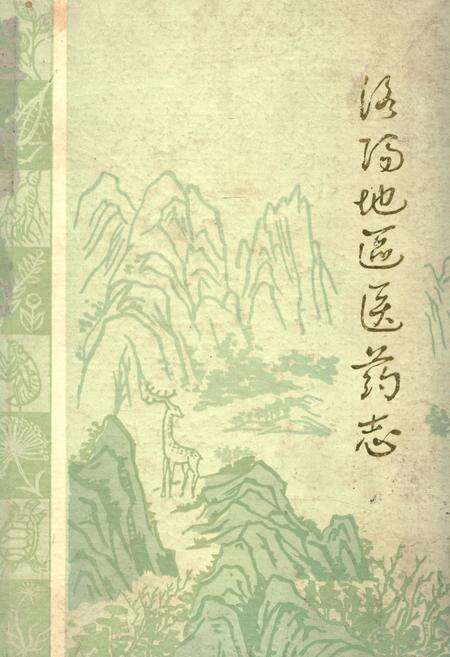 洛阳地區医药志